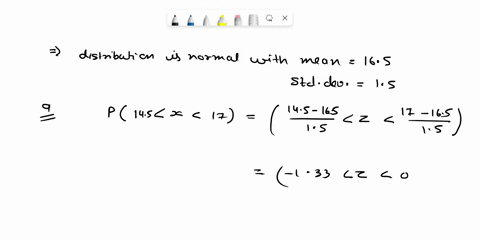 ⇒ distribution is normal with mean = 16.5
Std.dev. = 1.5
a P( 14.5 < x < 17) = ( 14.5-165/1.5 < z < 17-16.5/1.5 )
= (-1.33 < z < 0